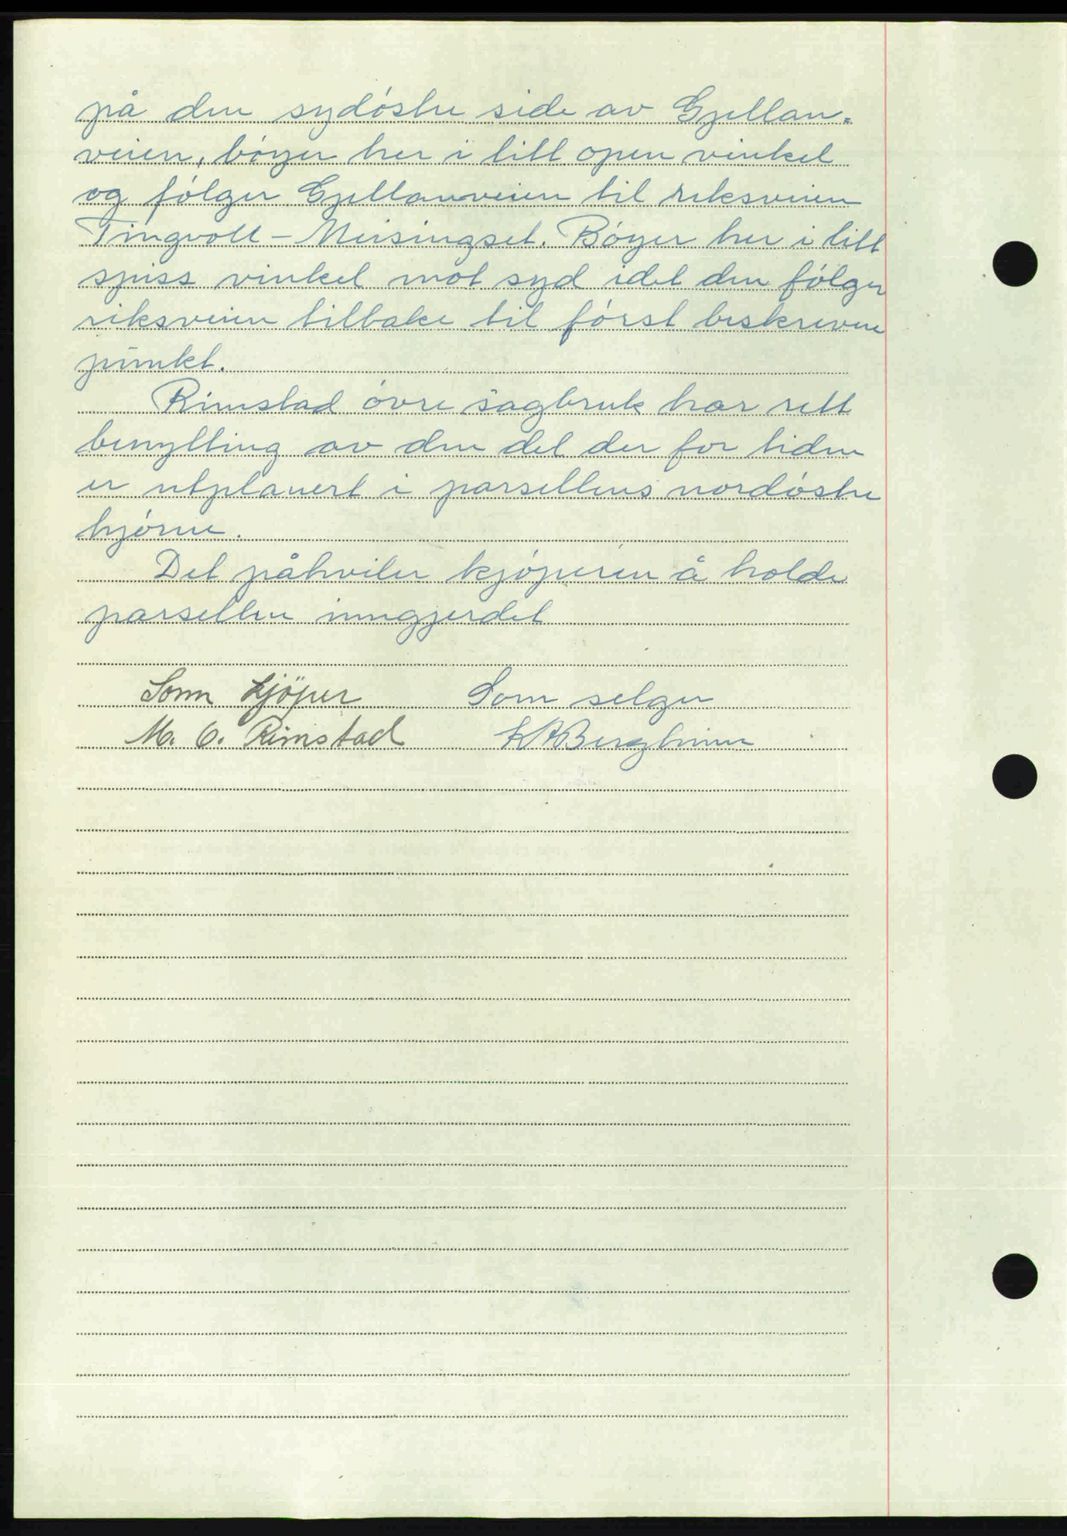 på den sydöstre side av Gjellan-
veien, böyer her i litt open vinkel
og fölger Gjellanveien til riksveien
Tingvoll - Meisingset. Böyer her i litt
spiss vinkel mot syd idet den fölger
riksveien tilbake til först beskrevne
punkt.
Rimstad övre sagbruk har rett
benytting av den del der for tiden
er utplanert i parsellens nordöstre
hjörne.
Det påhviler kjöperen å holde
parsellen inngjerdet
Som kjöper Som selger
M. O. Rimstad K A Bergheim